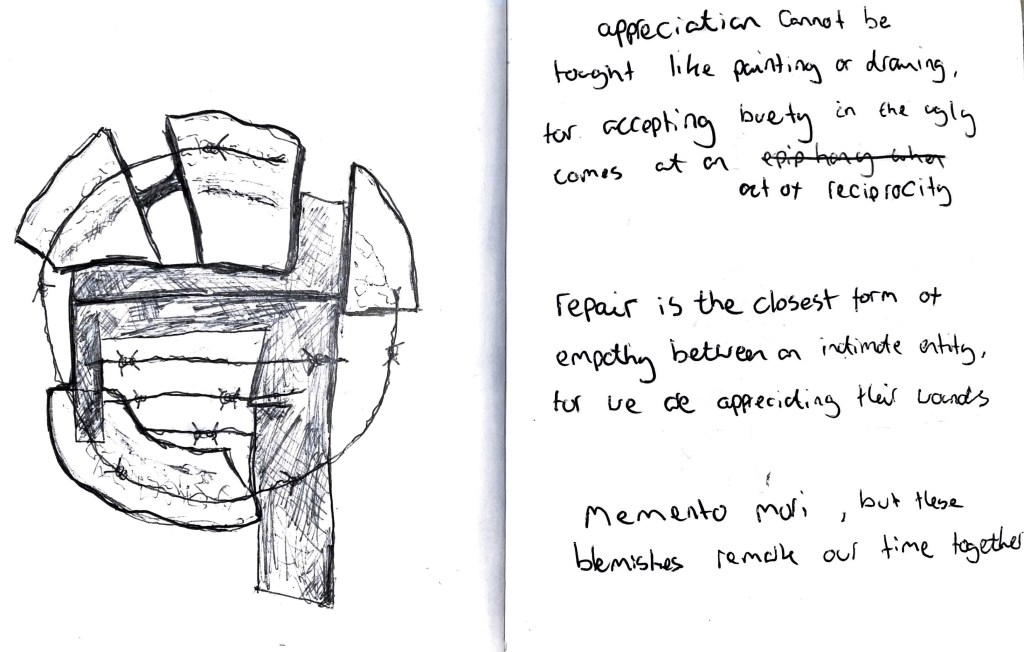 appreciation cannot be
tought like painting or drawing,
for accepting buety in the ugly
comes at an epiphany when
act of reciprocity
repair is the closest form of
empathy between an inatimate entity,
for we are appreciating their wounds
Memento mori, but these
blemishes remark our time together